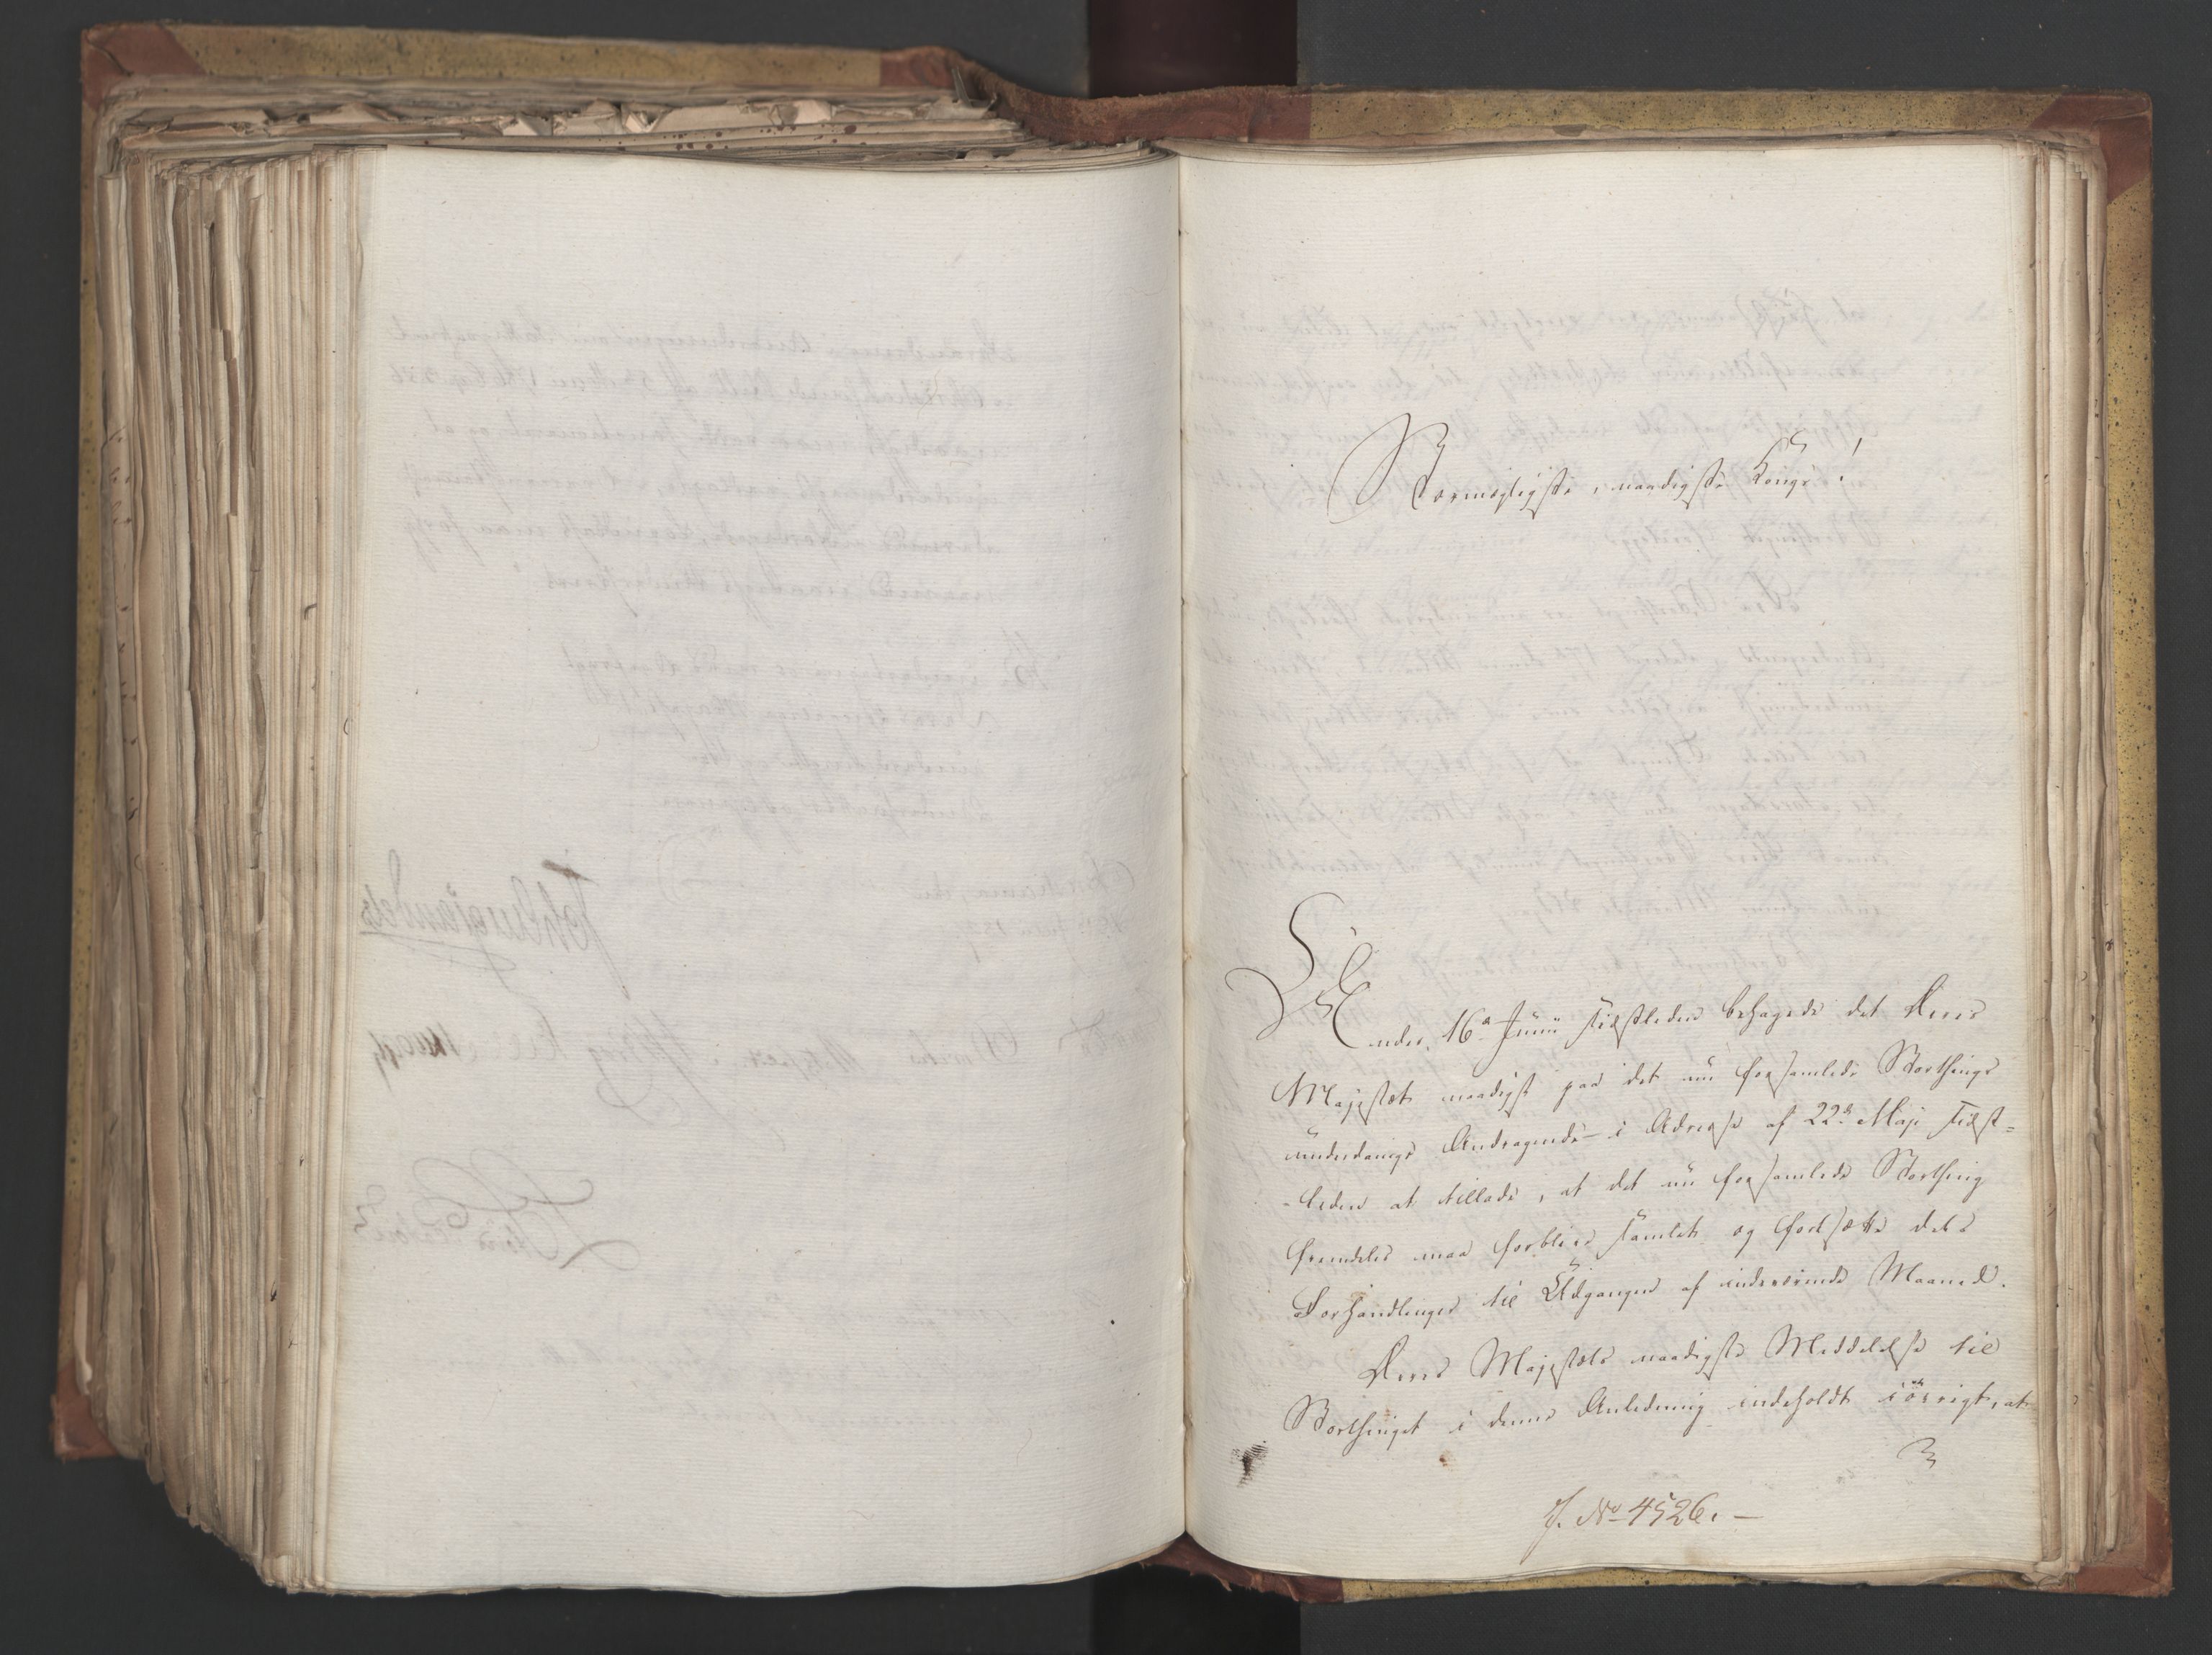 Stormægtigste, naadigste Konge!
Under 16de Junii sidstleden behagede det Deres
Majestæt naadigst paa det nu forsamlede Storthings
underdanige Andragende i Adresse af 22de Maji sidst-
-leden at tillade, at det nu forsamlede Storthing
fremdeles maa forblive samlet og fortsætte dets
Forhandlinger til Udgangen af indeværende Maaned.
Deres Majestæts naadigste Meddelelse til
Storthinget i denne Anledning indeholdt iövrigt, at
J. No 4526. —